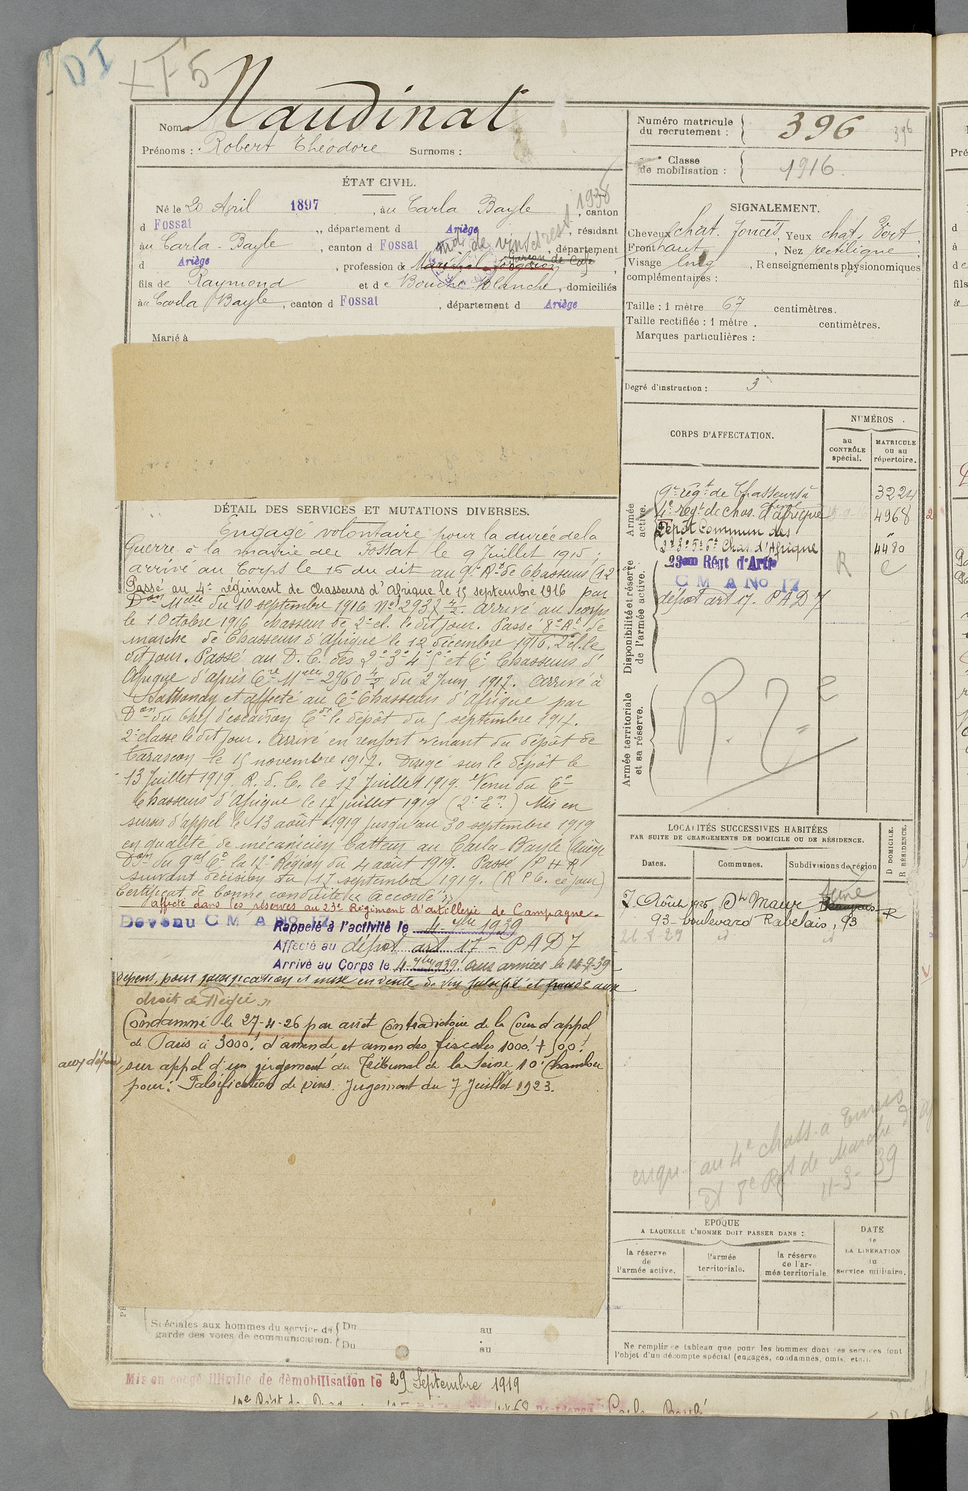 DI
+T5
Nom Naudinat
Prénoms : Robert Théodore Surnoms :
ÉTAT CIVIL.
Né le 20 April 1897, au Carla Bayle, canton
1938
d Fossat, département d Ariège, résidant
au Carla-Bayle, canton d Fossat, département
d Ariège, profession de Maréchal-
fils de Raymond et de Blanche, domiciliés
au Carla Bayle, canton d Fossat, département d Ariège
Marié à
DÉTAIL DES SERVICES ET MUTATIONS DIVERSES.
Engagé volontaire pour la durée de la
Guerre à la mairie de Fossat le 9 Juillet 1915;
arrivé au Corps le 15 du dit au 9e Rt de Chasseurs (12
Passé au 4e régiment de Chasseurs d'Afrique le 15 septembre 1916 par
Don Mlle du 10 septembre 1916 No 293 Arrivé au corps
le 1 Octobre 1916 Chasseur de 2e cl. le dit jour. Passé 8e Rt de
marche de Chasseurs d'Afrique le 12 décembre 1916. 2e cl. le
dit jour. Passé au D. C. des 2e 3e 4e 5e et 6e Chasseurs d'
Afrique d'après Cre Mlle 2960 du 2 Juin 1917. Arrivé à
et affecté au 6e Chasseurs d'Afrique par
Don du Chef d'escadron Ct le dépôt du 5 septembre 1917.
2e classe le dit jour. Arrivé en renfort venant du dépôt de
Tarascon le 15 novembre 1917. Dirigé sur le dépôt le
13 Juillet 1919. R. d. C. le 17 Juillet 1919. Venu du 6e
Chasseurs d'Afrique le 12 juillet 1919 (2e En.) Mis en
sursis d'appel le 13 août 1919 jusqu'au 30 septembre 1919
en qualité de mécanicien batteur au Carla-Bayle Ariège
Don du Gal Ct la 17e Région du 4 août 1919. Passé P H R
suivant décision du 17 septembre 1919. (R P C. ce jour)
Certificat de bonne conduite "accordé"
affecté dans les réserves au 23e Régiment d'artillerie de Campagne.
Devenu C M A No 17
Rappelé à l'activité le 4 7bre 1939
Affecté au dépôt art 17 - PAD 7
Arrivé au Corps le 4 7bre 939. aux armées le 10-9-39
dépens, pour falsification et mise en vente de vin falsifié et fraude aux
droits de Régie.
Condamné le 27-4-26 par arrêt Contradictoire de la Cour d'appel
de Paris à 3000f d'amende et amendes fiscales 1000f + 500f
aux dépens, sur appel d'un jugement du Tribunal de la Seine 10e Chambre
pour : Falsification de vins. Jugement du 7 Juillet 1923.
Spéciales aux hommes du service de garde des voies de communication.
Du au
Du au
Mis en congé illimité de démobilisation le 29 Septembre 1919
Numéro matricule du recrutement : 396
396
Classe de mobilisation : 1916
SIGNALEMENT.
Cheveux chat. foncés, Yeux chat. Vert
Front haut, Nez rectiligne
Visage long, Renseignements physionomiques
complémentaires :
Taille : 1 mètre 67 centimètres.
Taille rectifiée : 1 mètre , centimètres.
Marques particulières :
Degré d'instruction : 3
CORPS D'AFFECTATION.
NUMÉROS
au CONTRÔLE spécial.
MATRICULE ou au répertoire.
Armée active.
9e régt de Chasseurs à 3224
4e régt de chas. d'Afrique 4968
Dépôt Commun des
2e 3e 5e 6e Chas. d'Afrique 4480
Disponibilité et réserve de l'armée active.
23em Régt d'Artie R
C M A No 17
dépôt art 17 - PAD 7
Armée territoriale et sa réserve.
LOCALITÉS SUCCESSIVES HABITÉES
PAR SUITE DE CHANGEMENTS DE DOMICILE OU DE RÉSIDENCE.
Dates.
Communes.
Subdivisions de région
D DOMICILE.
R RÉSIDENCE.
7 Août 1925 St Maur Seine R
93 boulevard Rabelais, 93
engt au 4e chass. à
8e Rgt de Marche
11-3-39
ÉPOQUE
A LAQUELLE L'HOMME DOIT PASSER DANS :
DATE de LA LIBÉRATION du service militaire.
la réserve de l'armée active.
l'armée territoriale.
la réserve de l'armée territoriale.
Ne remplir ce tableau que pour les hommes dont les services font
l'objet d'un décompte spécial (engagés, condamnés, omis, etc.).